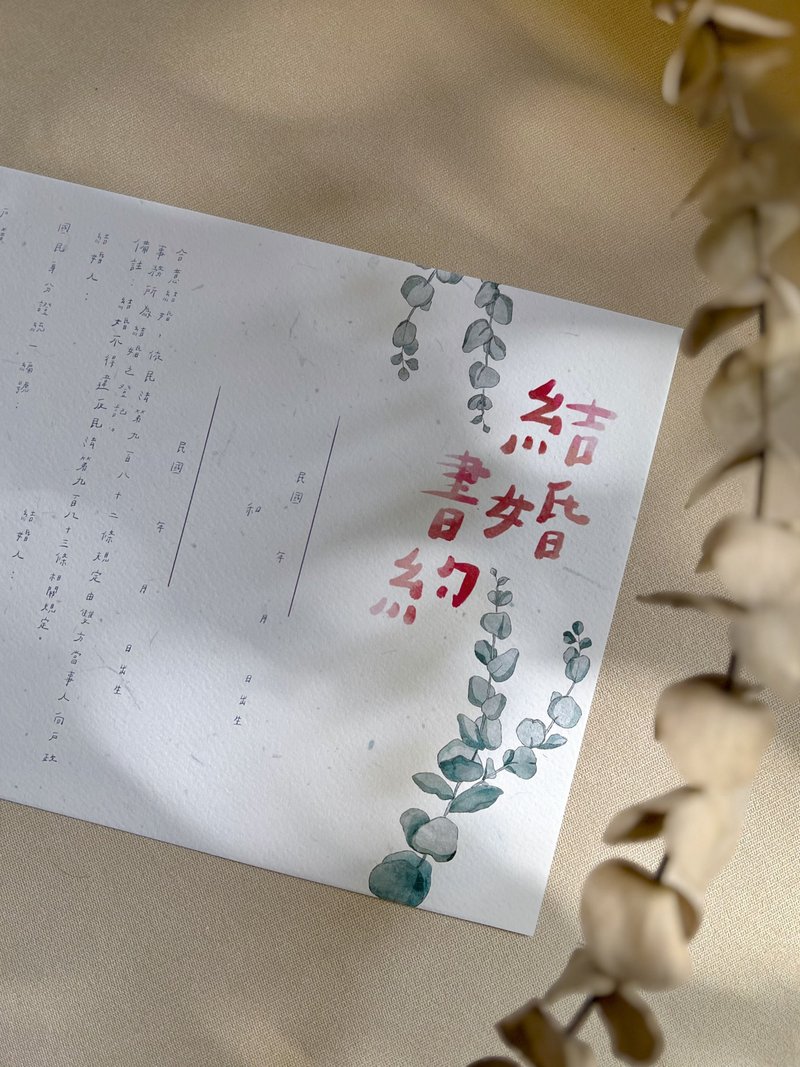 結婚
書約
民國 年 月 日出生
和
民國 年 月 日出生
合意結婚，依民法第九百八十二條規定由雙方當事人向戶政
事務所為結婚之登記。
備註：結婚不得違反民法第九百八十三條相關規定。
結婚人： 結婚人：
國民身分證統一編號：